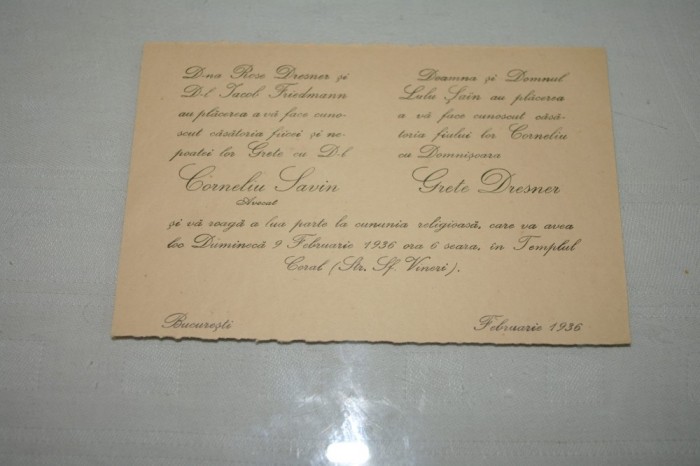 D-na Rose Dresner și
D-l Jacob Friedmann
au plăcerea a vă face cuno-
scut căsătoria fiicei și ne-
poatei lor Grete cu D-l
Corneliu Savin
Avocat
Doamna și Domnul
Lulu Șain au plăcerea
a vă face cunoscut căsă-
toria fiului lor Corneliu
cu Domnișoara
Grete Dresner
și vă roagă a lua parte la cununia religioasă, care va avea
loc Duminecă 9 Februarie 1936 ora 6 seara, în Templul
Coral (Str. Sf. Vineri).
București
Februarie 1936